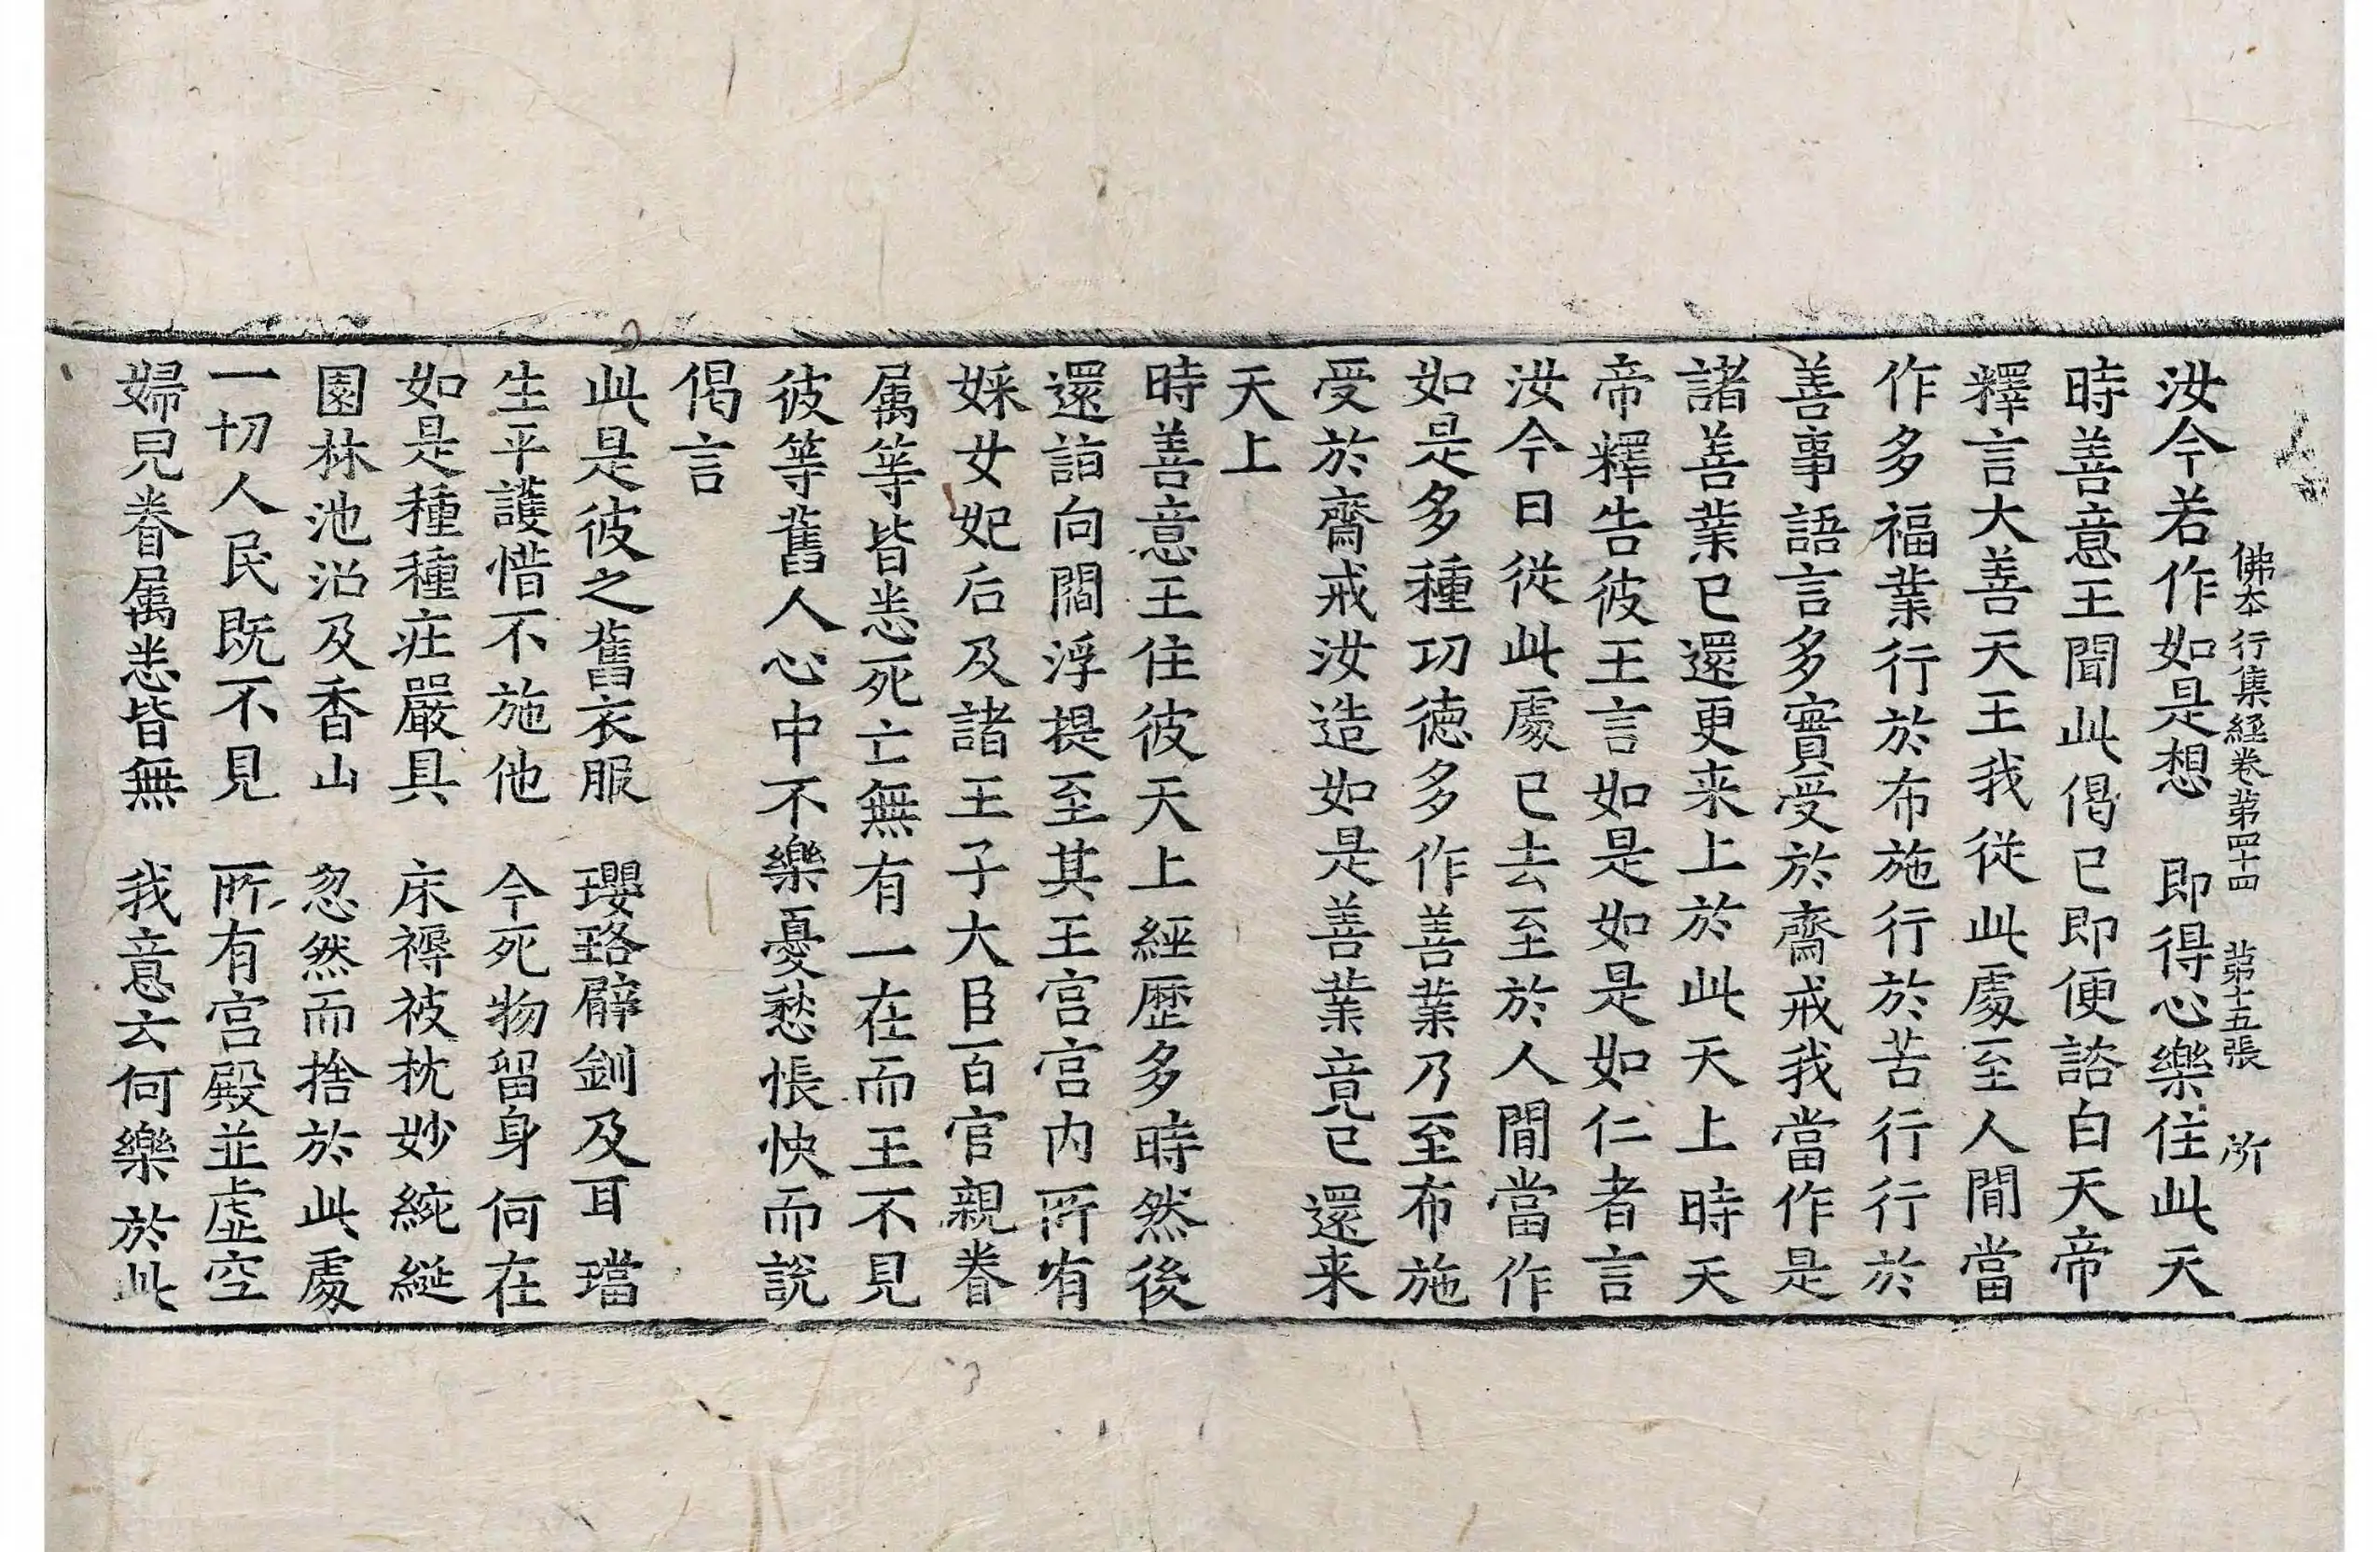 佛本行集經卷第四十四　第十五張　所
汝今若作如是想　即得心樂住此天
時善意王聞此偈已即便諮白天帝
釋言大善天王我從此處至人間當
作多福業行於布施行於苦行行於
善事語言多實受於齋戒我當作是
諸善業已還更来上於此天上時天
帝釋告彼王言如是如是如仁者言
汝今日從此處已去至於人間當作
如是多種功德多作善業乃至布施
受於齋戒汝造如是善業竟已還来
天上
時善意王住彼天上經歷多時然後
還詣向閻浮提至其王宮宮内所有
婇女妃后及諸王子大臣百官親眷
属等皆悉死亡無有一在而王不見
彼等舊人心中不樂憂愁悵怏而說
偈言
此是彼之舊衣服　瓔珞臂釧及耳璫
生平護惜不施他　今死物留身何在
如是種種莊嚴具　床褥被枕妙綩綖
園林池沼及香山　忽然而捨於此處
一切人民既不見　所有宮殿並虛空
婦兒眷属悉皆無　我意云何樂於此